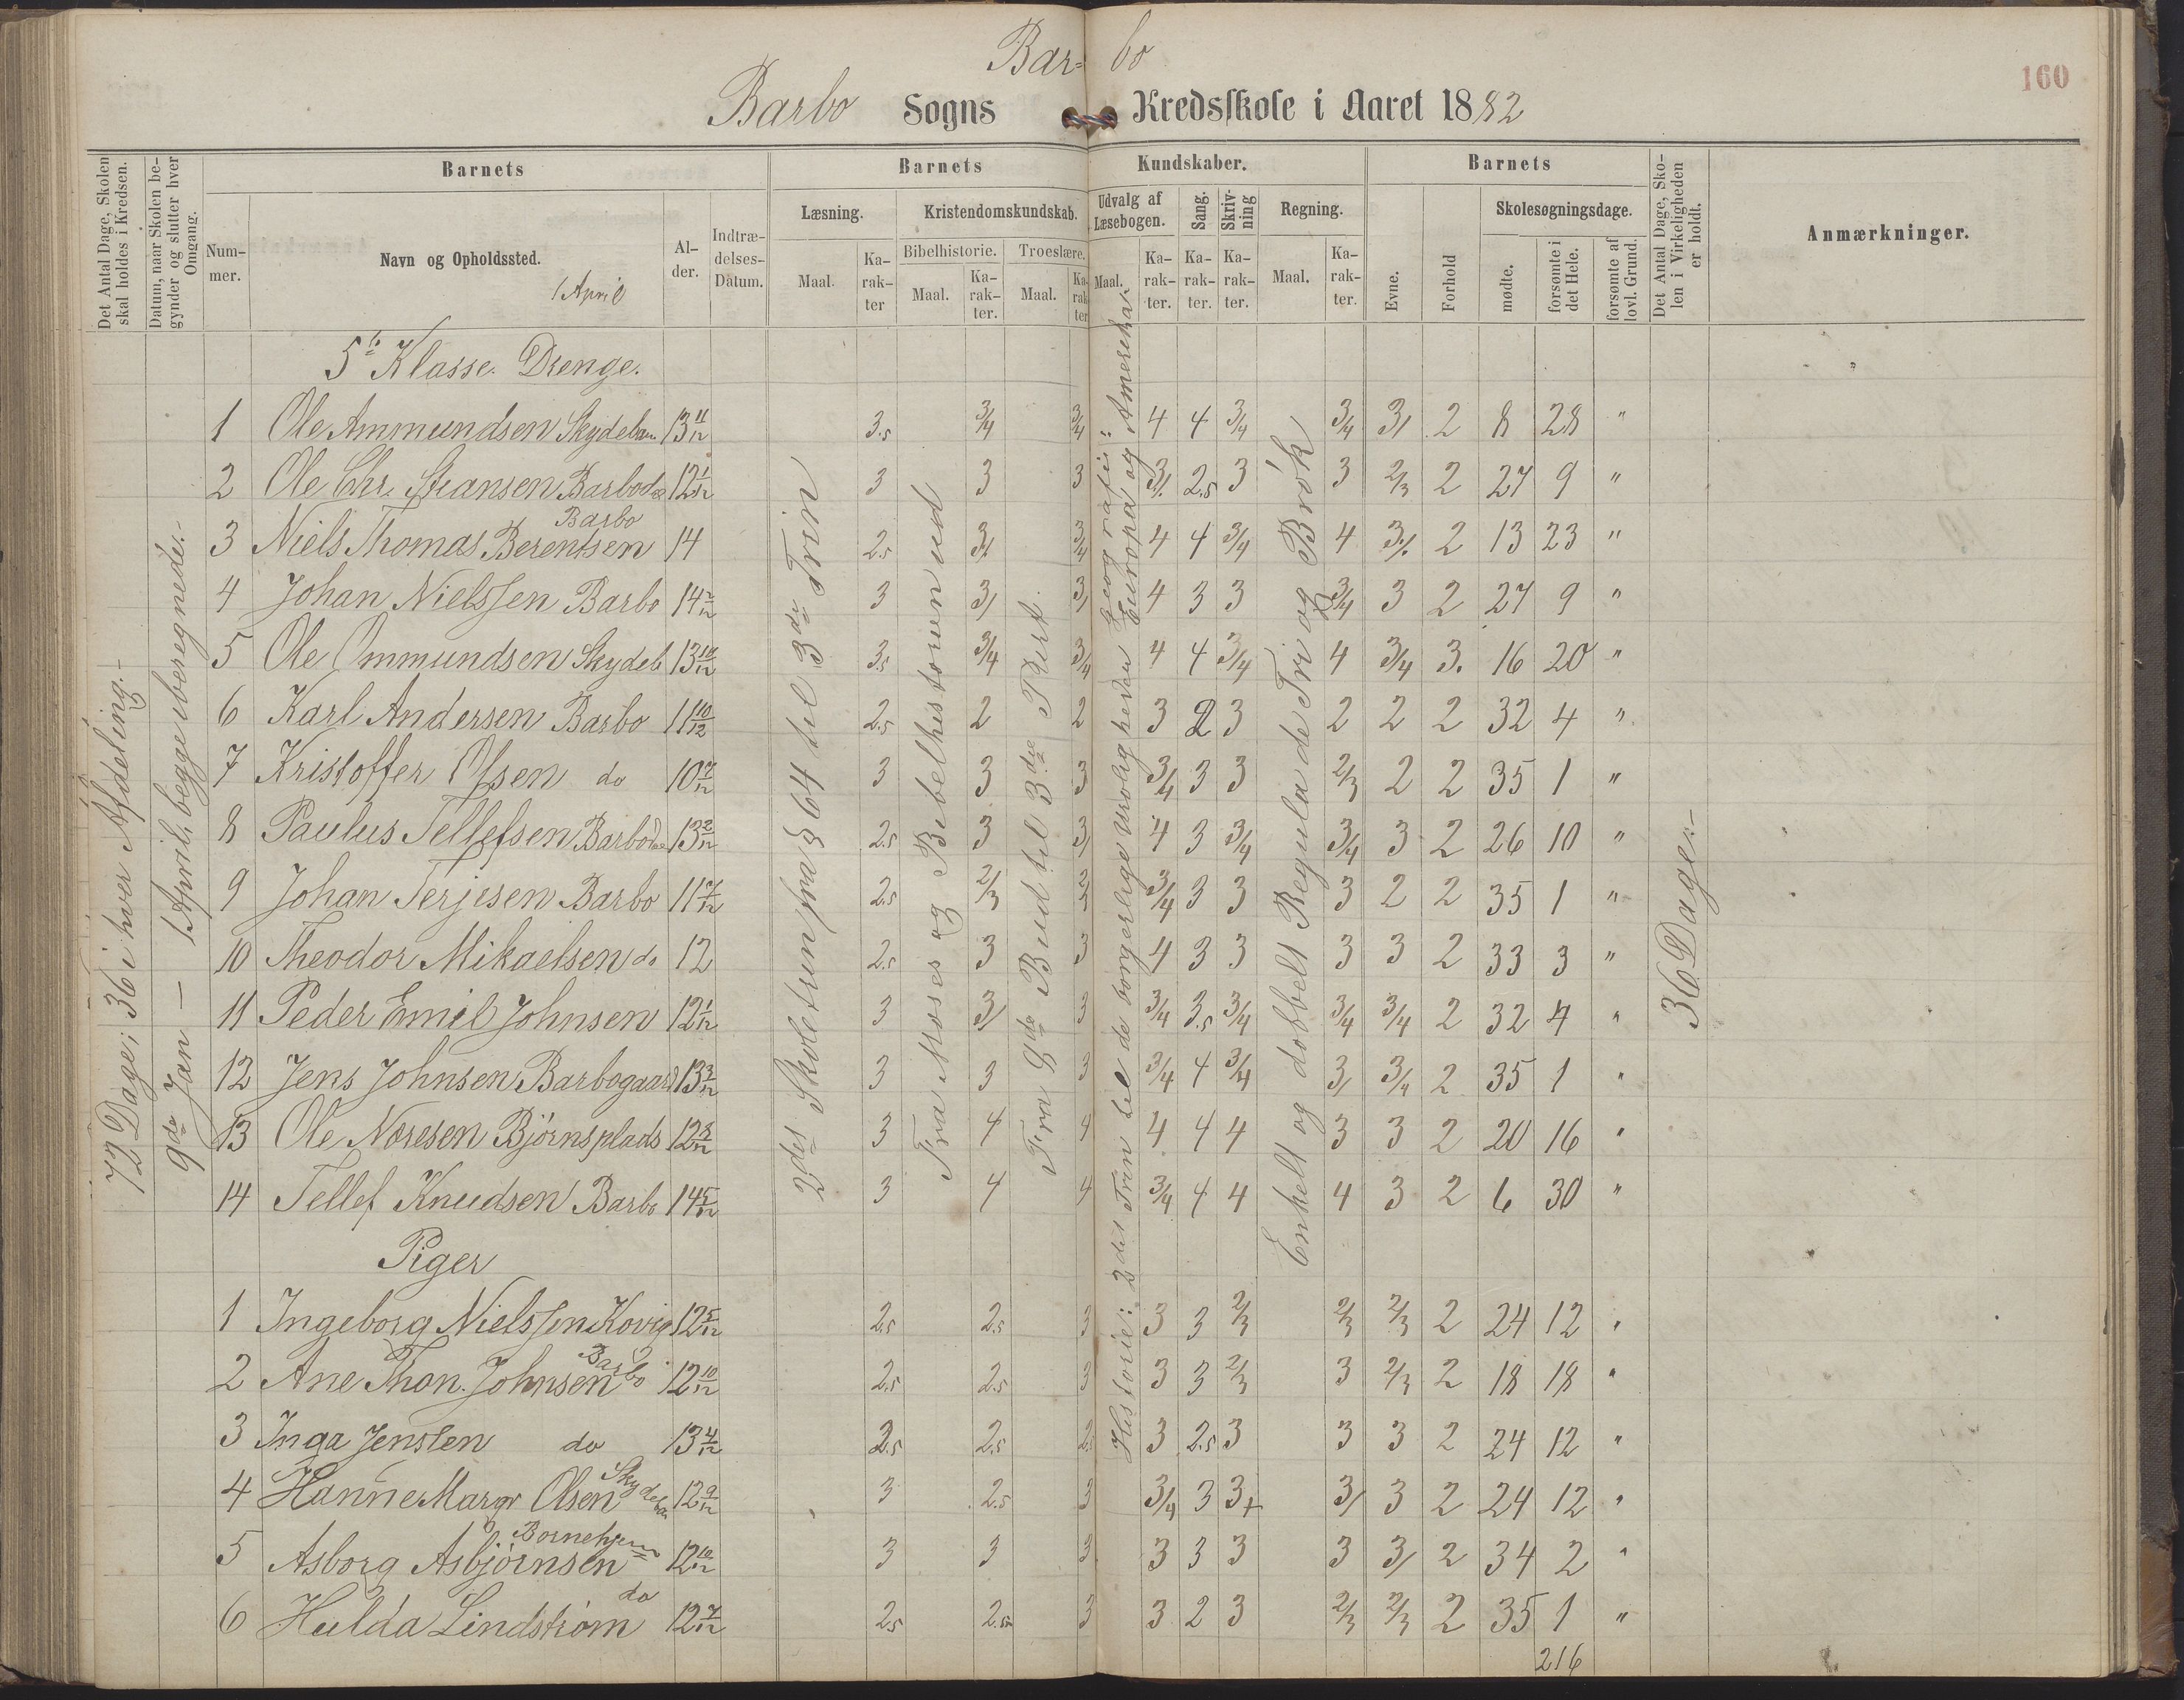 Bar= bo
160
Barbo Sogns Kredsskole i Aaret 1882
Det Antal Dage, Skolen skal holdes i Kredsen.
Datum, naar Skolen begynder og slutter hver Omgang.
Barnets
Barnets Kundskaber.
Barnets
Det Antal Dage, Skolen i Virkeligheden er holdt.
Anmærkninger.
Nummer.
Navn og Opholdssted.
1 April
Alder.
Indtrædelses-Datum.
Læsning.
Kristendomskundskab.
Udvalg af Læsebogen.
Sang.
Skrivning
Regning.
Evne.
Forhold
Skolesøgningsdage.
Bibelhistorie.
Troeslære.
Maal.
Karakter
Maal.
Karakter.
Maal.
Karakter
Maal.
Karakter.
Karakter.
Karakter.
Maal.
Karakter.
mødte.
forsømte i det Hele.
forsømte af lovl. Grund.
72 Dage; 36 i hver Afdeling.-
9de Jan - 1 April, begge iberegnede.-
2det Skoletrin fra § 64 til 3die Trin
Fra Moses og Bibelhistorien ud
Fra 8de Bud til 3die Part.
Historie: 2det Trin til de borgerlige Urolighederne
Geografi: Europa og Amerika
Enkelt og dobbelt Regula de Tri og Brök
36 Dage.-
5te Klasse. Drenge.
1 Ole Ammundsen Skydeban 13 11/12 3.5 3/4 3/4 4 4 3/4 3/4 3/ 2 8 28 "
2 Ole Chr. Stiansen 12 1/12 3 3 3 3/. 2.5 3 3 2/3 2 27 9 "
3 Niels Thomas Berentsen Barbo 14 2.5 3/. 3/4 4 4 3/4 4 3/. 2 13 23 "
4 Johan Nielssen Barbo 14 2/12 3 3/ 3/ 4 3 3 3/4 3 2 27 9 "
5 Ole Ommundsen Skydeb 13 10/12 3.5 3/4 3/4 4 4 3/4 4 3/4 3. 16 20 "
6 Karl Andersen Barbo 11 10/12 2.5 2 2 3 2 3 2 2 2 32 4 "
7 Kristoffer Olsen do 10 7/12 3 3 3 3/4 3 3 2/3 2 2 35 1 "
8 Paulus Tellefsen 13 2/12 2.5 3 3/ 4 3 3/4 3/4 3 2 26 10 "
9 Johan Terjesen Barbo 11 7/12 2.5 2/3 2/3 3/4 3 3 3 2 2 35 1 "
10 Theodor Mikaelsen do 12 2.5 3 3 4 3 3 3 3 2 33 3 "
11 Peder Emil Johnsen 12 1/12 3 3/ 3 3/4 3.5 3/4 3/4 3/4 2 32 4 "
12 Jens Johnsen Barbogaard 13 3/12 3 3 3 3/4 4 3/4 3/ 3/4 2 35 1 "
13 Ole Noresen Björnsplads 12 8/12 3 4 4 4 4 4 3 3 2 20 16 "
14 Tellef Knudsen Barbo 14 5/12 3 4 4 3/4 4 4 4 3 2 6 30 "
Piger
1 Ingeborg Nielssen Kovig 12 5/12 2.5 2.5 3 3 3 2/3 2/3 2/3 2 24 12 "
2 Ane Thon. Johnsen Barbo 12 10/12 2.5 2.5 3 3 3 2/3 3 2/3 2 18 18 "
3 Inga Jensten do 13 4/12 2.5 2.5 2.5 3 2.5 3 3 3 2 24 12 "
4 Hanne Margr Olsen Skydeban 12 9/12 3 2.5 3 3/4 3 3+ 3/ 3 2 24 12 "
5 Asborg Asbjörnsen Börnehjem 12 10/12 3 3 3 3 3 3 3 3/ 2 34 2 "
6 Hulda Lindström do 12 7/12 2.5 2.5 3 3 2 3 2/3 2/3 2 35 1 "
216